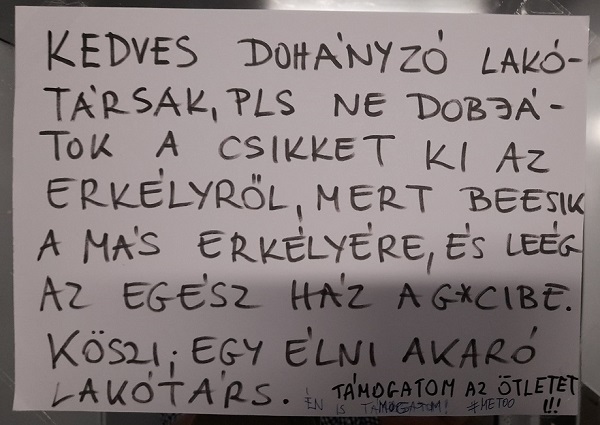 KEDVES DOHÁNYZÓ LAKÓ-
TÁRSAK, PLS NE DOBJÁ-
TOK A CSIKKET KI AZ
ERKÉLYRŐL, MERT BEESIK
A MÁS ERKÉLYÉRE, ÉS LEÉG
AZ EGÉSZ HÁZ A G*CIBE.
KÖSZI; EGY ÉLNI AKARÓ
LAKÓTÁRS. TÁMOGATOM AZ ÖTLETET !!!
ÉN IS TÁMOGATOM! #METOO